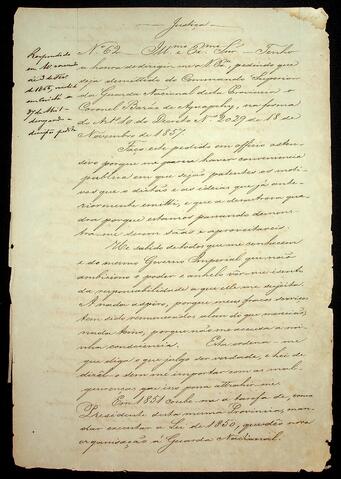 Justiça
Respondido
em
de 1865,
Nº 62 Illmo e Exmo Snr. - Tenho
a honra de dirigir-me a V Exa, pedindo que
seja demittido do Commando Superior
da Guarda Nacional desta Provincia o
Coronel Barão de Aguapehy, na forma
do Artº 10 do Decreto Nº 2029 de 18 de
Novembro de 1857.
Faço este pedido em officio osten-
sivo porque me parece haver conveniencia
publica em que sejão patentes os moti-
vos que o dictão e as idéias que já ante-
riormente emitti, e que a desastrosa qua-
dra porque estamos passando demons-
trão-me serem sãas e aproveitaveis.
He sabido de todos que me conhecem
e do mesmo Governo Imperial que não
ambiciono o poder e anhelo vêr-me isento
da responsabilidade a que elle me sujeita.
A nada aspiro, porque meus fracos serviços
tem sido remunerados alem do que merecião,
nada temo, porque não me accusa a mi-
nha consciencia. Esta ordena-me
que diga o que julgo ser verdade, e hei de
dizêl-o sem me importar com as mal-
querenças que isso possa attrahir-me
Em 1851 coube-me a tarefa de, como
Presidente desta mesma Provincia, man-
dar executar a Lei de 1850, que deo nova
organisação á Guarda Nacional.